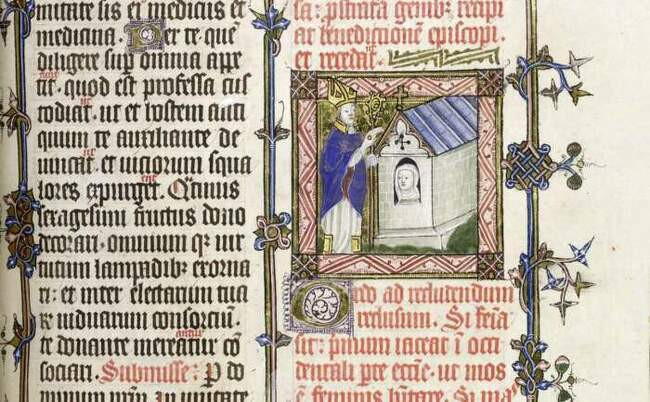 mitate sis ei medicus et
medicina. Per te quē
diligere suꝑ omnia ape
tit. quod est professa cus
todiat. ut et hostem anti
quum te auxiliante de
uincat. et uiciorum squa
lores expurget. Q̄tinus
sexagesimi fructus dono
decorari. omnium qꝫ uir
tutum lampadibꝫ exorna
ri: et inter electarum tua
R uiduarum consorciū
te donante mereatur cō
sociari. Submisse: P do
minum nr̄m. In unitate
sa: pstrata genibꝫ recipi
at benedictionē episcopi.
et recedat
Ordo ad recludendum
reclusum. Si feīa
sit: primum iaceat ī occi
dentali ꝑte ecc̄ie. ut mos
ē feminis habitare. Si ma